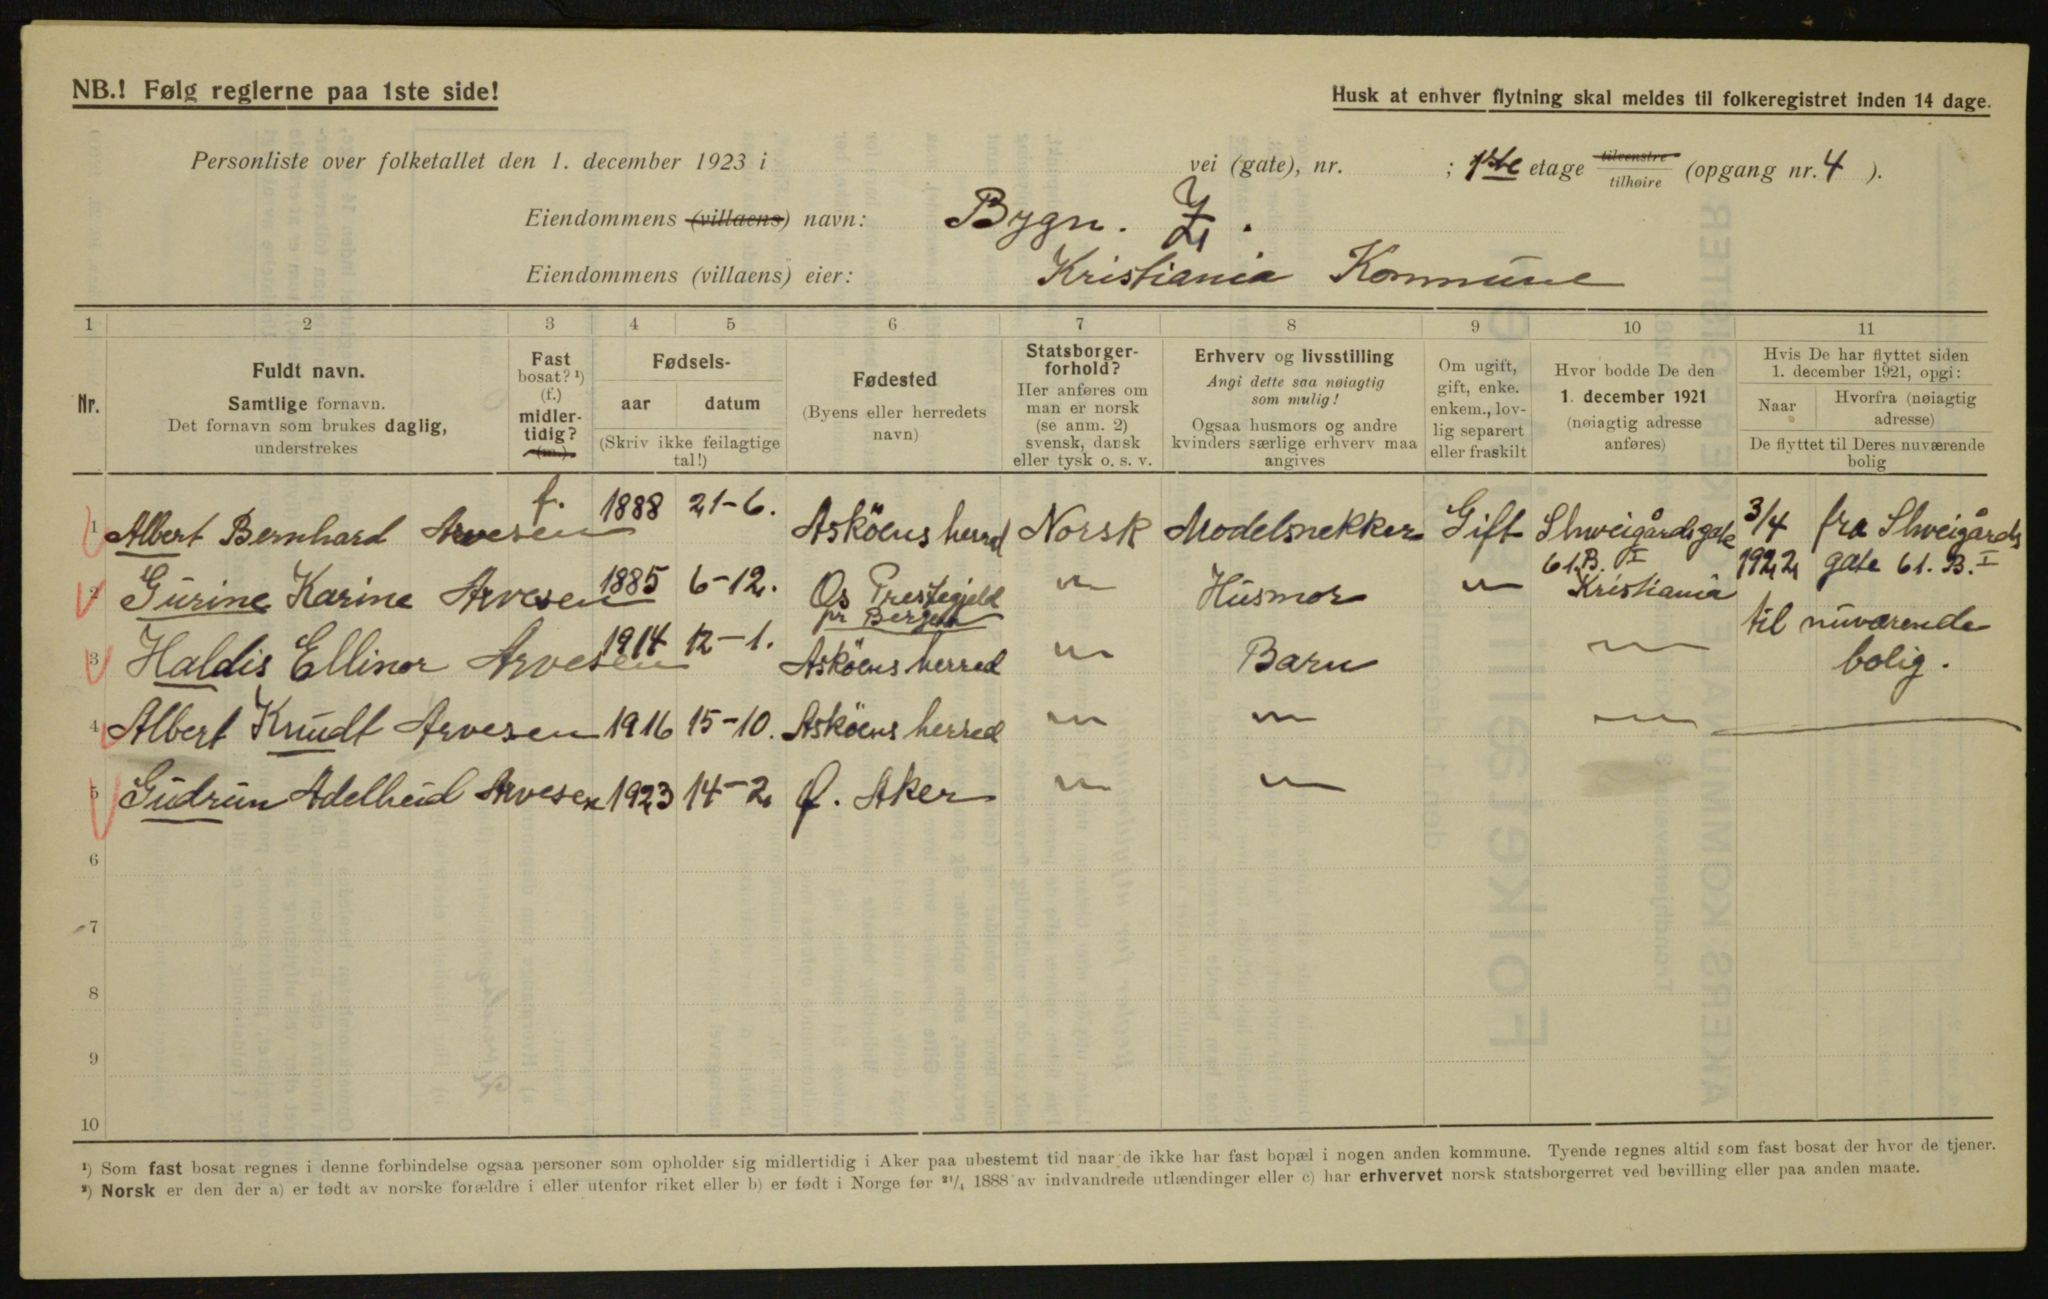 NB.! Følg reglerne paa 1ste side!
Husk at enhver flytning skal meldes til folkeregistret inden 14 dage.
Personliste over folketallet den 1. december 1923 i vei (gate), nr. ; 1ste etage tilvenstre tilhøire (opgang nr. 4 ).
Eiendommens (villaens) navn: Bygn.
Eiendommens (villaens) eier: Kristiania Kommune
1 2 3 4 5 6 7 8 9 10 11
Nr.
Fuldt navn.
Samtlige fornavn.
Det fornavn som brukes daglig,
understrekes
Fast
bosat? ¹)
(f.)
midler-
tidig?
(m.).
Fødsels-
aar datum
(Skriv ikke feilagtige
tal!)
Fødested
(Byens eller herredets
navn)
Statsborger-
forhold?
Her anføres om
man er norsk
(se anm. 2)
svensk, dansk
eller tysk o. s. v.
Erhverv og livsstilling
Angi dette saa nøiagtig
som mulig!
Ogsaa husmors og andre
kvinders særlige erhverv maa
angives
Om ugift,
gift, enke.
enkem., lov-
lig separert
eller fraskilt
Hvor bodde De den
1. december 1921
(nøiagtig adresse
anføres)
Hvis De har flyttet siden
1. december 1921, opgi:
Naar
Hvorfra (nøiagtig
adresse)
De flyttet til Deres nuværende
bolig
1 Albert Bernhard Arvesen f. 1888 21-6. Asköens herred Norsk Modelsnekker Gift Shweigårds gate 3/4 fra Shweigårds
61.B. I 1922 gate 61. B. I
2 Gurine Karine Arvesen 1885 6-12. Os Prestegjeld " Husmor " Kristiania til nuværende
pr Bergen
3 Haldis Ellinor Arvesen 1914 12-1. Asköens herred " Barn " bolig.
4 Albert Knudt Arvesen 1916 15-10. Asköens herred " " "
5 Gudrun Adelheid Arvesen 1923 14-2 Ø. Aker " "
6
7
8
9
10
¹) Som fast bosat regnes i denne forbindelse ogsaa personer som opholder sig midlertidig i Aker paa ubestemt tid naar de ikke har fast bopæl i nogen anden kommune. Tyende regnes altid som fast bosat der hvor de tjener.
²) Norsk er den der a) er født av norske forældre i eller utenfor riket eller b) er født i Norge før ²¹/₄ 1888 av indvandrede utlændinger eller c) har erhvervet norsk statsborgerret ved bevilling eller paa anden maate.